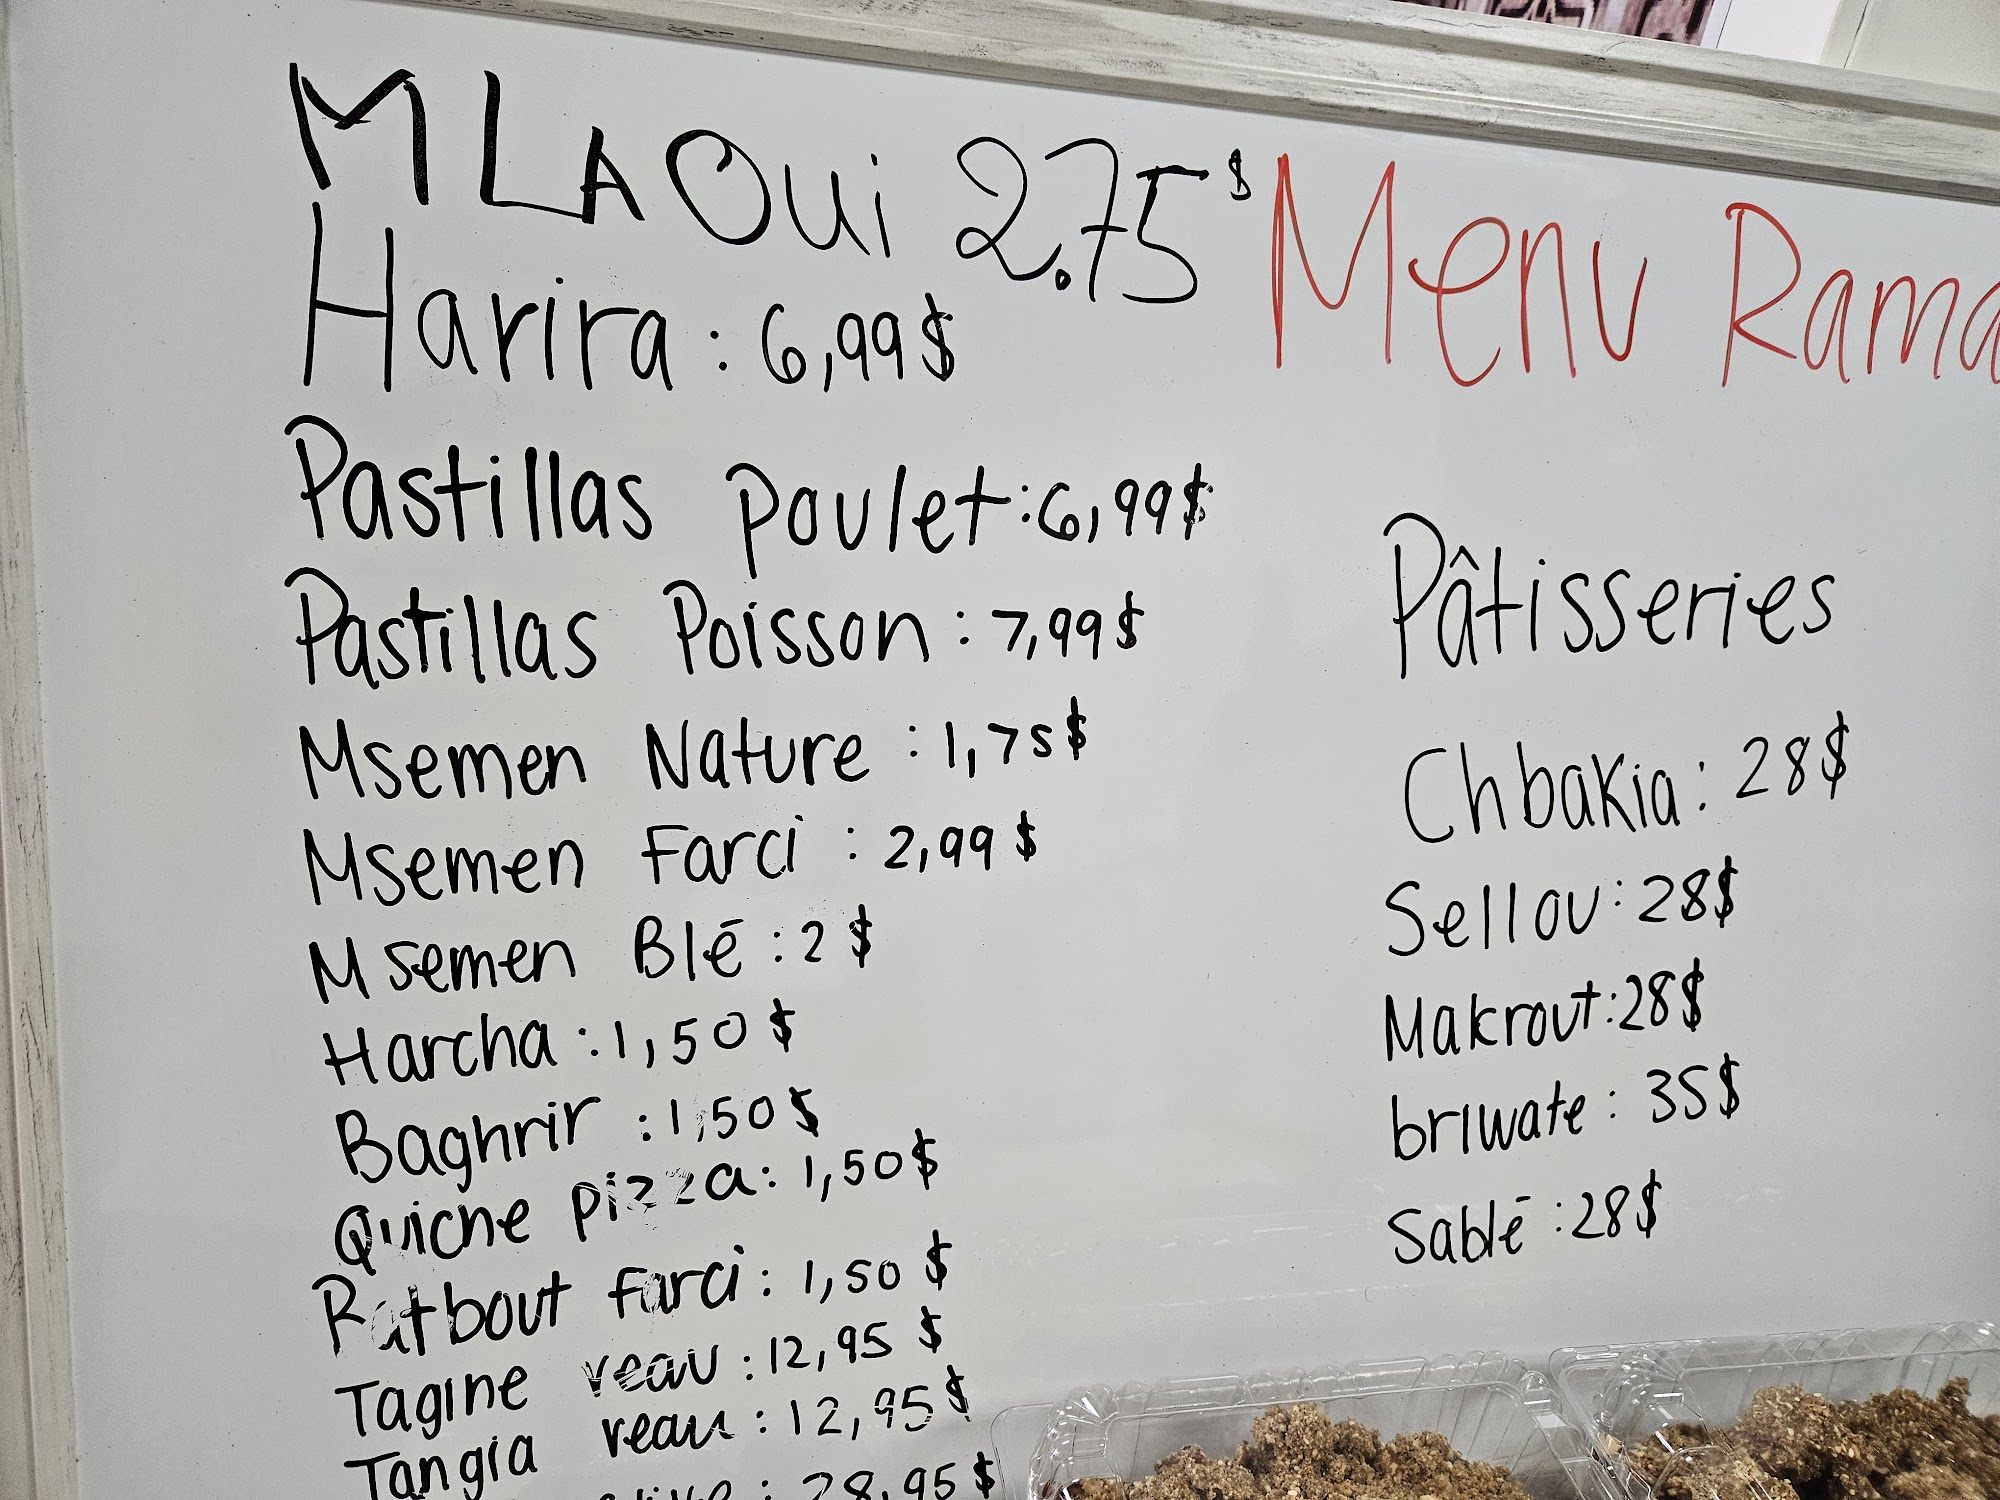 MLAOui 2.75$
Harira : 6,99$
Pastillas poulet : 6,99$
Pastillas Poisson : 7,99$
Msemen Nature : 1,75$
Msemen Farci : 2,99$
Msemen Blé : 2$
Harcha : 1,50$
Baghrir : 1,50$
Quiche pizza : 1,50$
Ratbout farci : 1,50$
Tagine veau : 12,95$
Tangia veau : 12,95$
: 28,95$
Menu Rama
Pâtisseries
Chbakia : 28$
Sellou : 28$
Makrout : 28$
briwate : 35$
Sablé : 28$